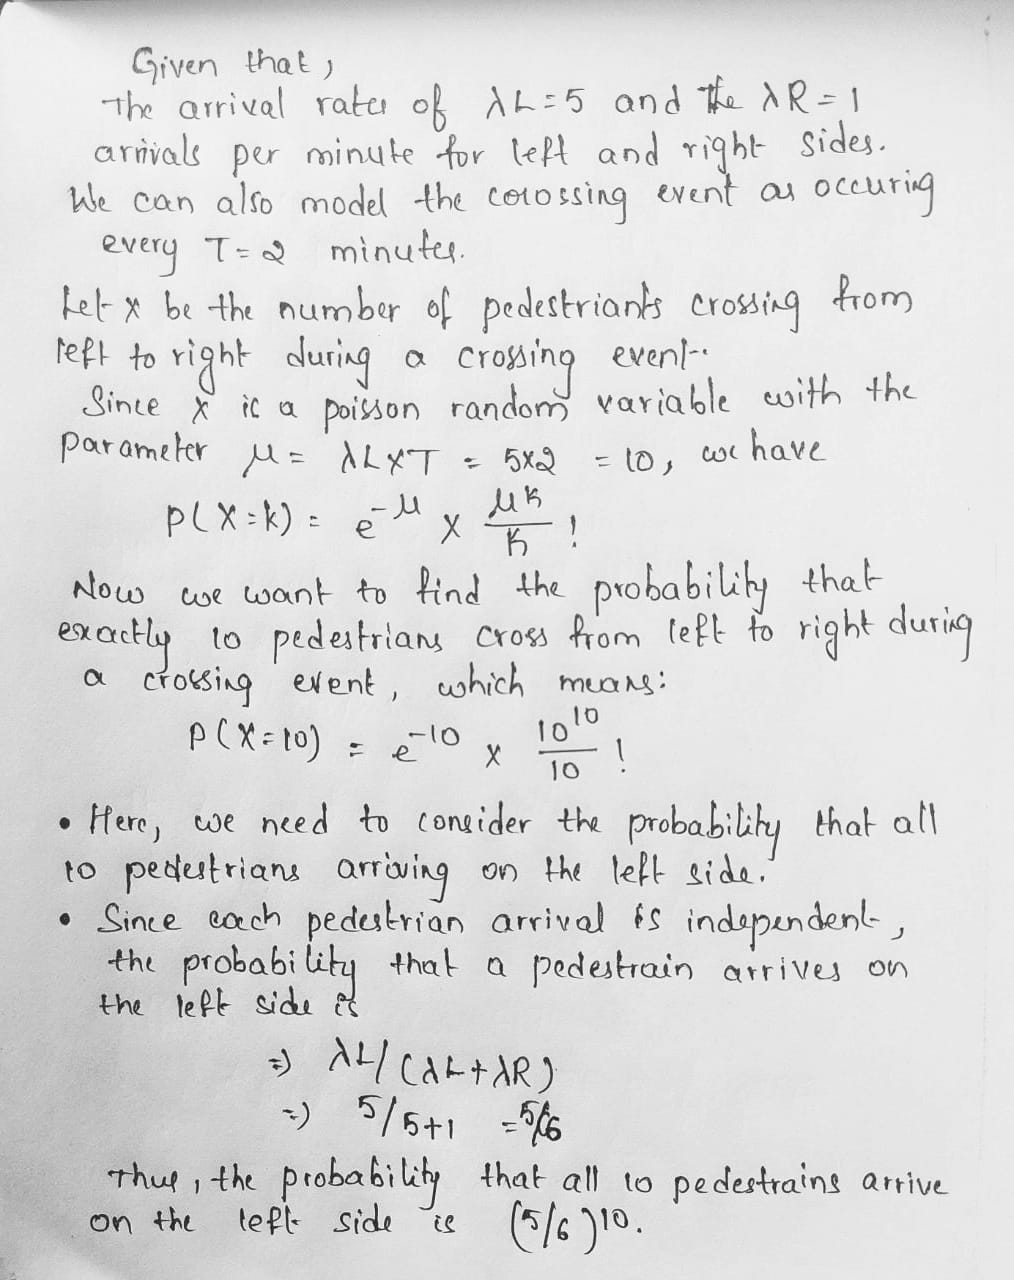 Given that,
The arrival rates of λL=5 and the λR=1
arrivals per minute for left and right sides.
We can also model the crossing event as occuring
every T=2 minutes.
Let x be the number of pedestriants crossing from
left to right during a crossing event.
Since x is a poisson random variable with the
parameter μ = λL×T = 5×2 = 10, we have
P(X=k) = e^-μ × μk/k !
Now we want to find the probability that
exactly 10 pedestrians cross from left to right during
a crossing event, which means:
P(X=10) = e^-10 × 10^10/10 !
• Here, we need to consider the probability that all
10 pedestrians arriving on the left side.
• Since each pedestrian arrival is independent,
the probability that a pedestrain arrives on
the left side is
⇒ λL/(λL+λR)
⇒ 5/5+1 = 5/6
Thus, the probability that all 10 pedestrains arrive
on the left side is (5/6)10.